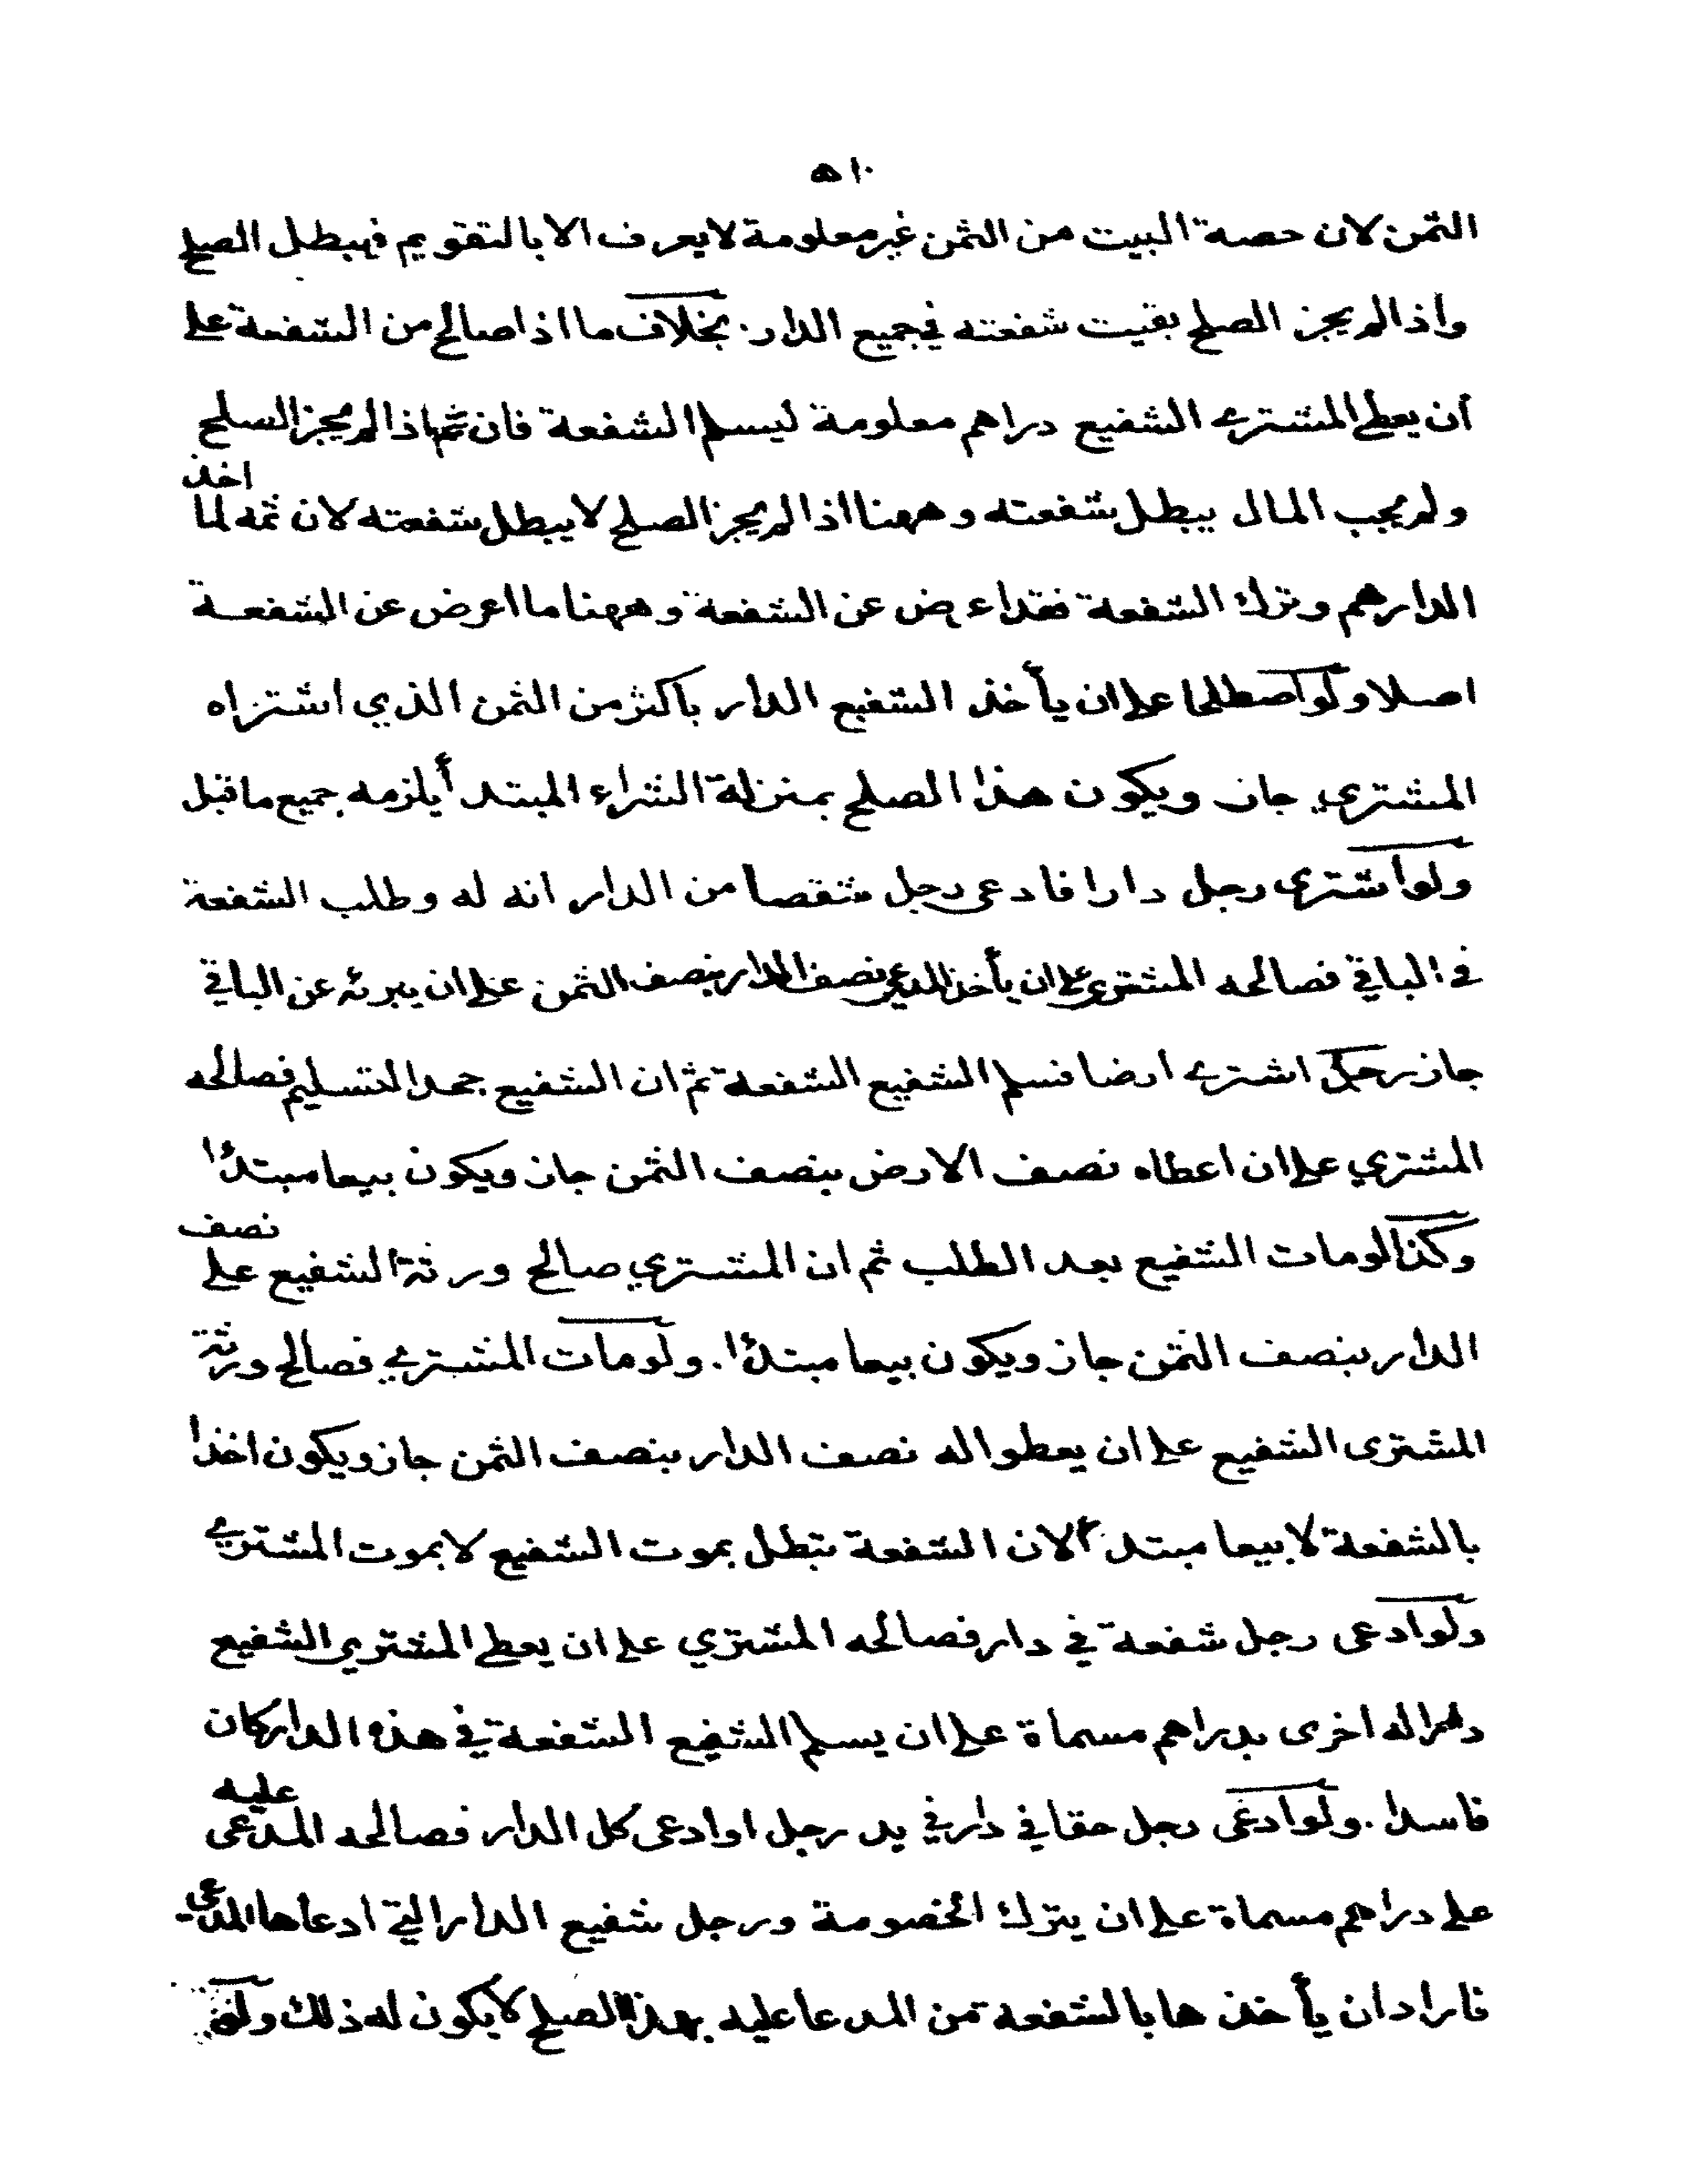 ٥١٠
الثمن لان حصة البيت من الثمن غير معلومة لا يعرف الا بالتقويم فيبطل الصلح
واذا لم يجز الصلح بقيت شفعته في جميع الدار. بخلاف ما اذا صالح من الشفعة على
أن يعطي المشتري الشفيع دراهم معلومة ليسلم الشفعة فان ثمه اذا لم يجز السلح
ولم يجب المال يبطل شفعته وههنا اذا لم يجز الصلح لا يبطل شفعته لان ثمه لما اخذ
الدارهم وترك الشفعة فقد اعرض عن الشفعة وههنا ما اعرض عن الشفعة
اصلا ولو اصطلحا على ان يأخذ الشفيع الدار بأكثر من الثمن الذي اشتراه
المشتري جاز ويكون هذا الصلح بمنزلة الشراء المبتدأ يلزمه جميع ما قبل
ولو اشترى رجل دارا فادعى رجل شقصا من الدار انه له وطلب الشفعة
في الباقي فصالحه المشتري على ان يأخذ المدعي نصف الدار بنصف الثمن على ان يبرئه عن الباقي
جاز رجل اشترى ارضا فسلم الشفيع الشفعة ثم ان الشفيع جحد التسليم فصالحه
المشتري على ان اعطاه نصف الارض بنصف الثمن جاز ويكون بيعا مبتدئا
وكذا لو مات الشفيع بعد الطلب ثم ان المشتري صالح ورثة الشفيع على نصف
الدار بنصف الثمن جاز ويكون بيعا مبتدئا. ولو مات المشتري فصالح ورثة
المشترى الشفيع على ان يعطوا له نصف الدار بنصف الثمن جاز ويكون اخذا
بالشفعة لا بيعا مبتدأ لان الشفعة تبطل بموت الشفيع لا بموت المشتري
ولو ادعى رجل شفعة في دار فصالحه المشتري على ان يعطي المشتري الشفيع
اخرى بدراهم مسماة على ان يسلم الشفيع الشفعة في هذه الدار كان
فاسدا. ولو ادعى رجل حقا في دار في يد رجل او ادعى كل الدار فصالحه المدعى عليه
على دراهم مسماة على ان يترك الخصومة ورجل شفيع الدار التي ادعاها المدعي
فاراد ان يأخذ ها بالشفعة من المدعا عليه بهذا الصلح لا يكون له ذلك